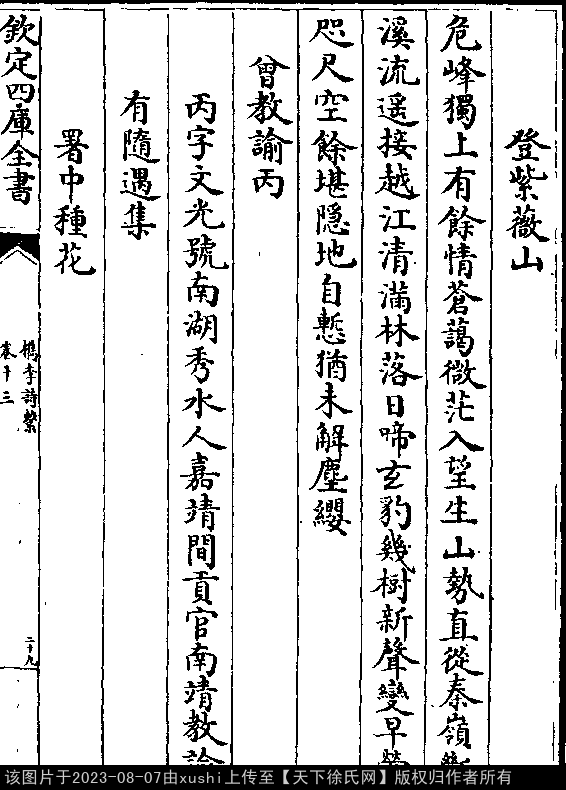 登紫薇山
危峰獨上有餘情蒼藹微茫入望生山勢直從秦嶺斷
溪流遥接越江清滿林落日啼玄豹幾樹新聲變早鶯
咫尺空餘堪隠地自慙猶未解塵纓
曾教諭丙
丙字文光號南湖秀水人嘉靖間貢官南靖教諭
有隨遇集
署中種花
欽定四庫全書
檇李詩繫
卷十三
二十九
该图片于2023-08-07由xushi上传至【天下徐氏网】版权归作者所有